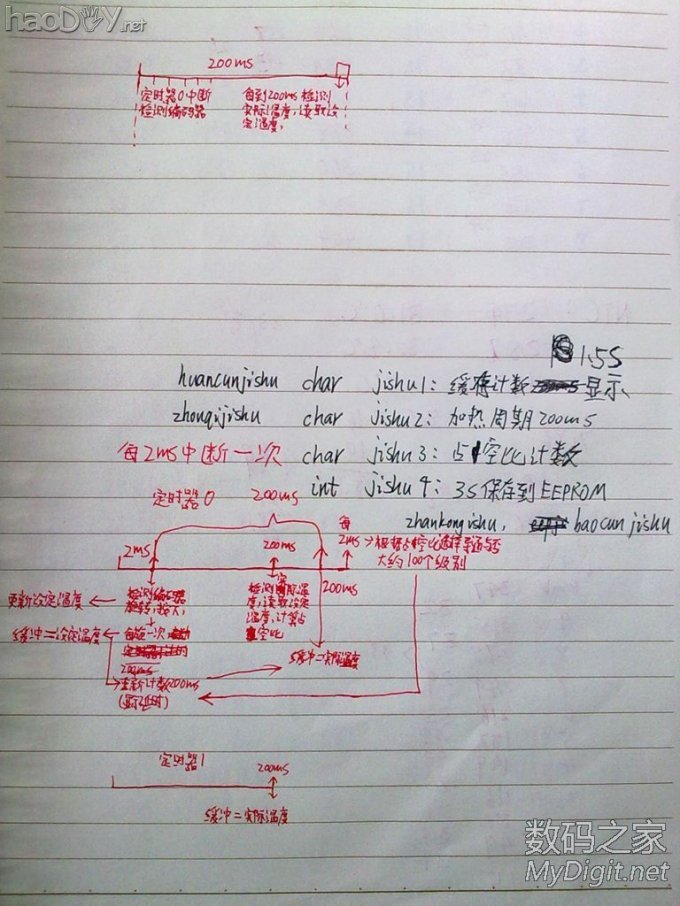 haoDIY.net
200ms
定时器0中断
检测编码器
每到200ms检测
实际温度,读取设
定温度,
1.5S
huancunjishu char jishu1: 缓存计数 显示
zhouqijishu char jishu2: 加热周期200ms
每2ms中断一次 char jishu3: 占空比计数
int jishu4: 3S保存到EEPROM
zhankongjishu, baocunjishu
定时器0 200ms
2ms
200ms
每
2ms→根据占空比选择导通与否
大约100个级别
200ms
更新设定温度
检测编码器
旋转,按下,
检测实际温
度,读取设定
温度,计算占
空比
缓冲=设定温度
每转一次
200ms
重新计数200ms
(显示延时)
缓冲=实际温度
定时器1 200ms
缓冲=实际温度
数码之家
MyDigit.net